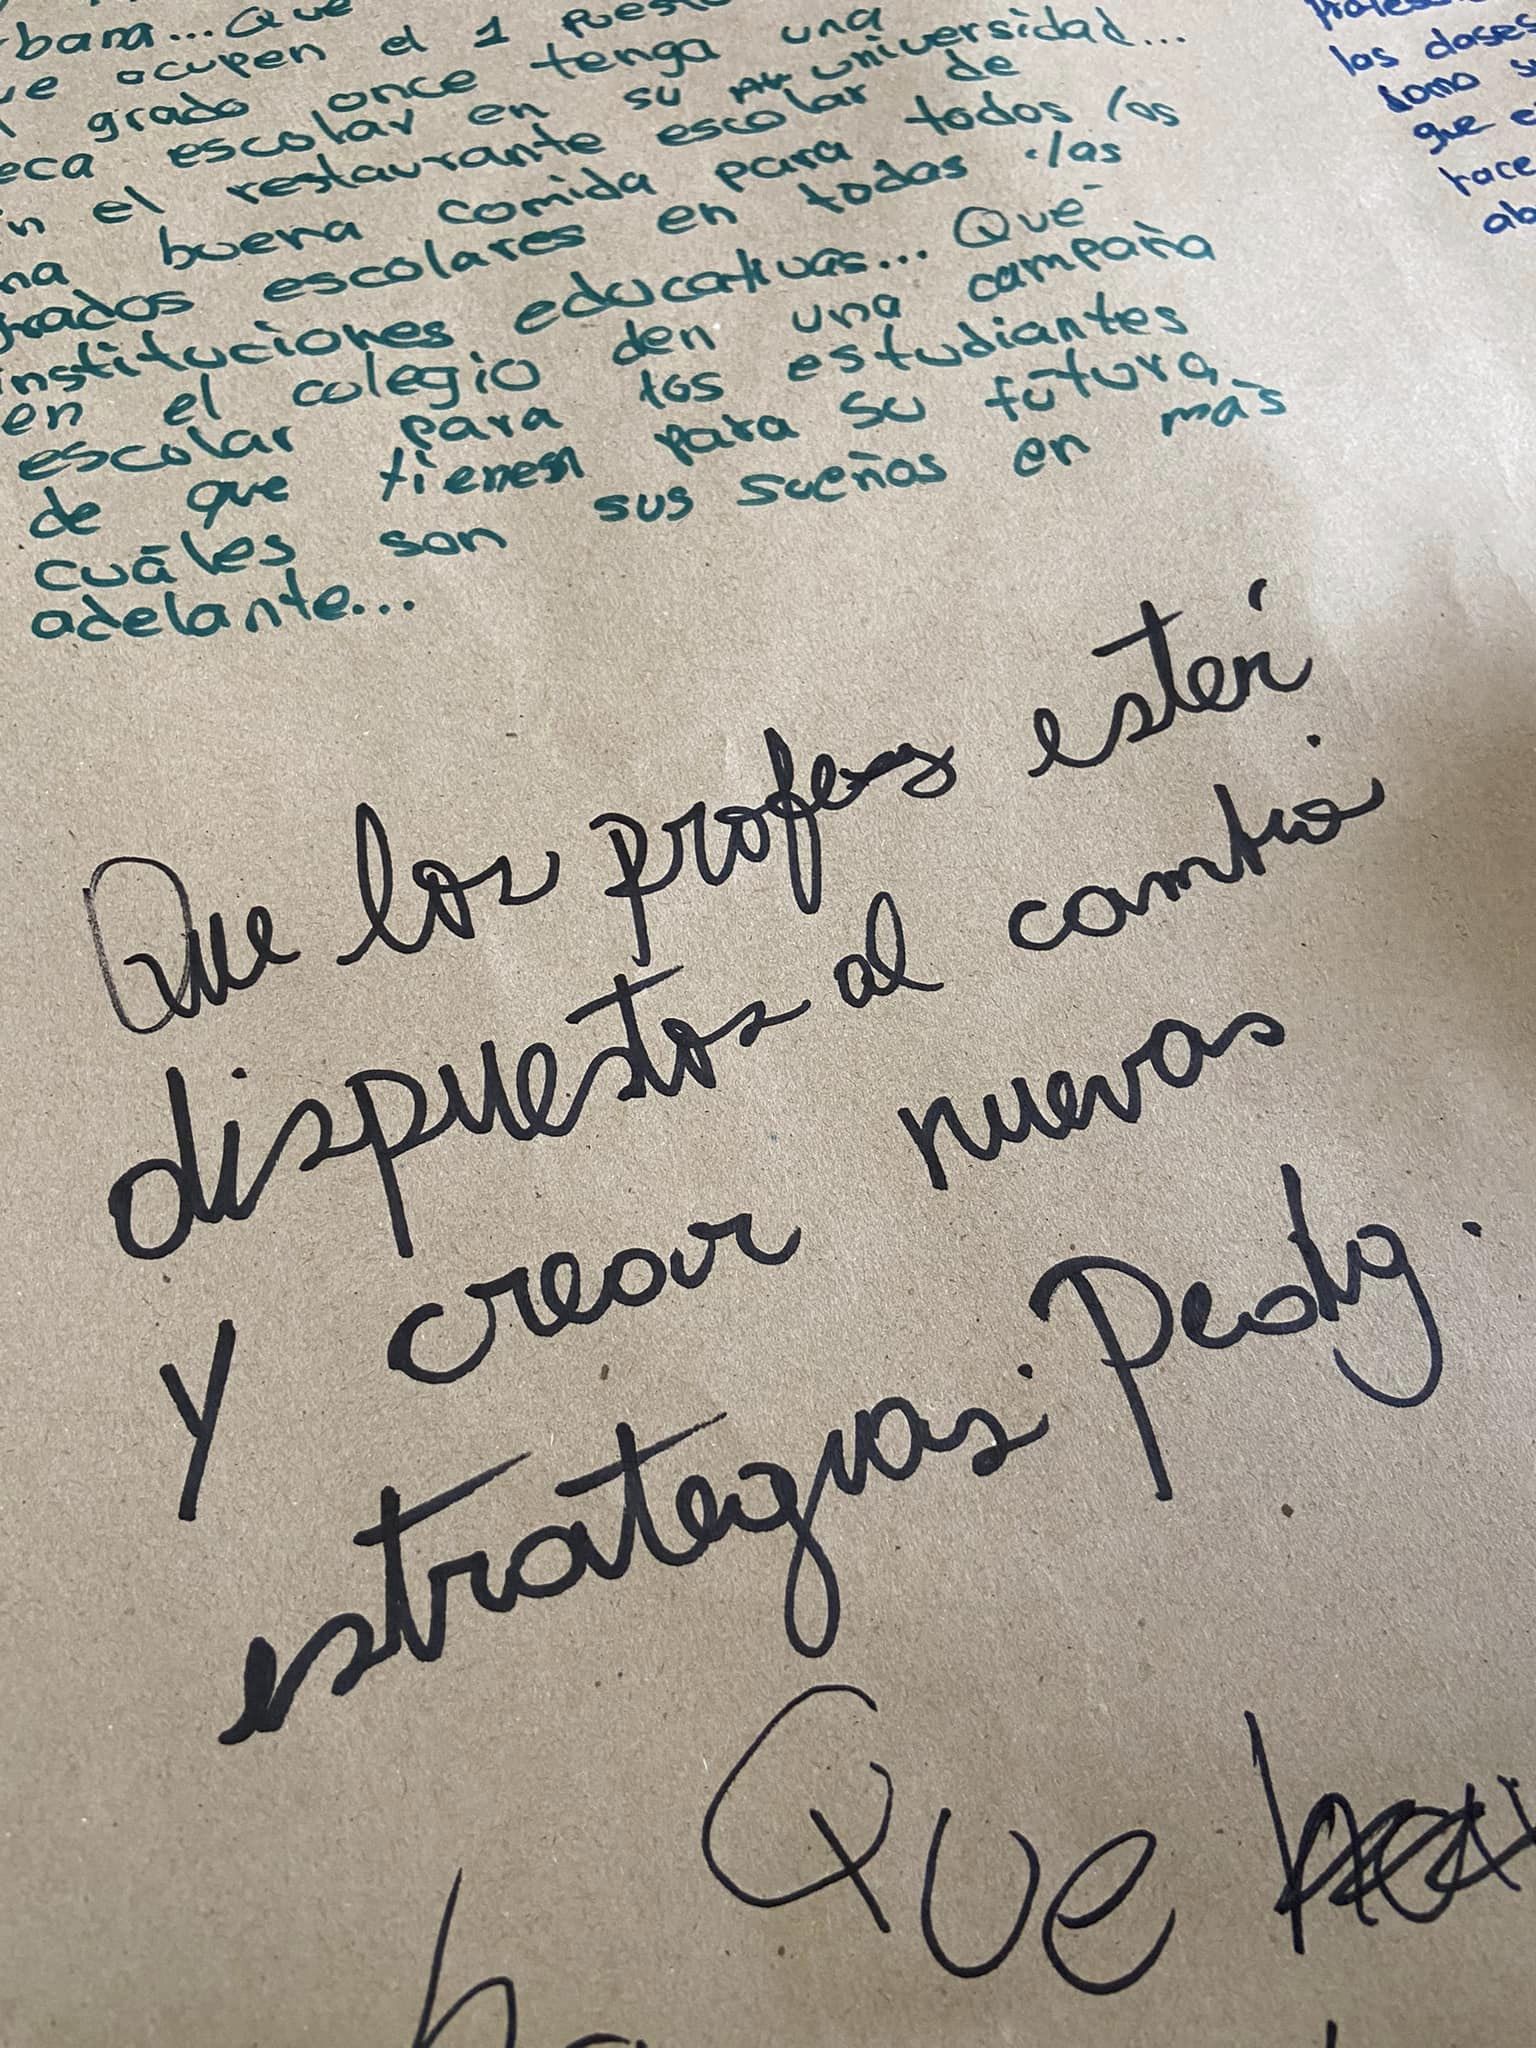 bana... Que
ocupen el 1 puesto
grado once tenga una
escolar en su universidad...
en el restaurante escolar de
buena comida para todos los
grados escolares en todas las
instituciones educativas... Que
en el colegio den una campaña
escolar para los estudiantes
de que tienen para su futura
cuáles son sus sueños en mas
adelante...
los clases
que e
hace
Que los profes estén
dispuestos al cambio
y crear nuevas
estrategias. Pedag.
Que